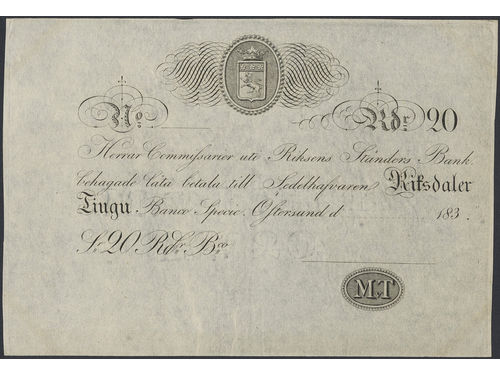 No. Rdr. 20
Herrar Commissarier uti Riksens Ständers Bank
behagade låta betala till Sedelhafvaren Riksdaler
Tiugu Banco Specie. Östersund d 183 .
Sr. 20 Rdr. Bco
M.T